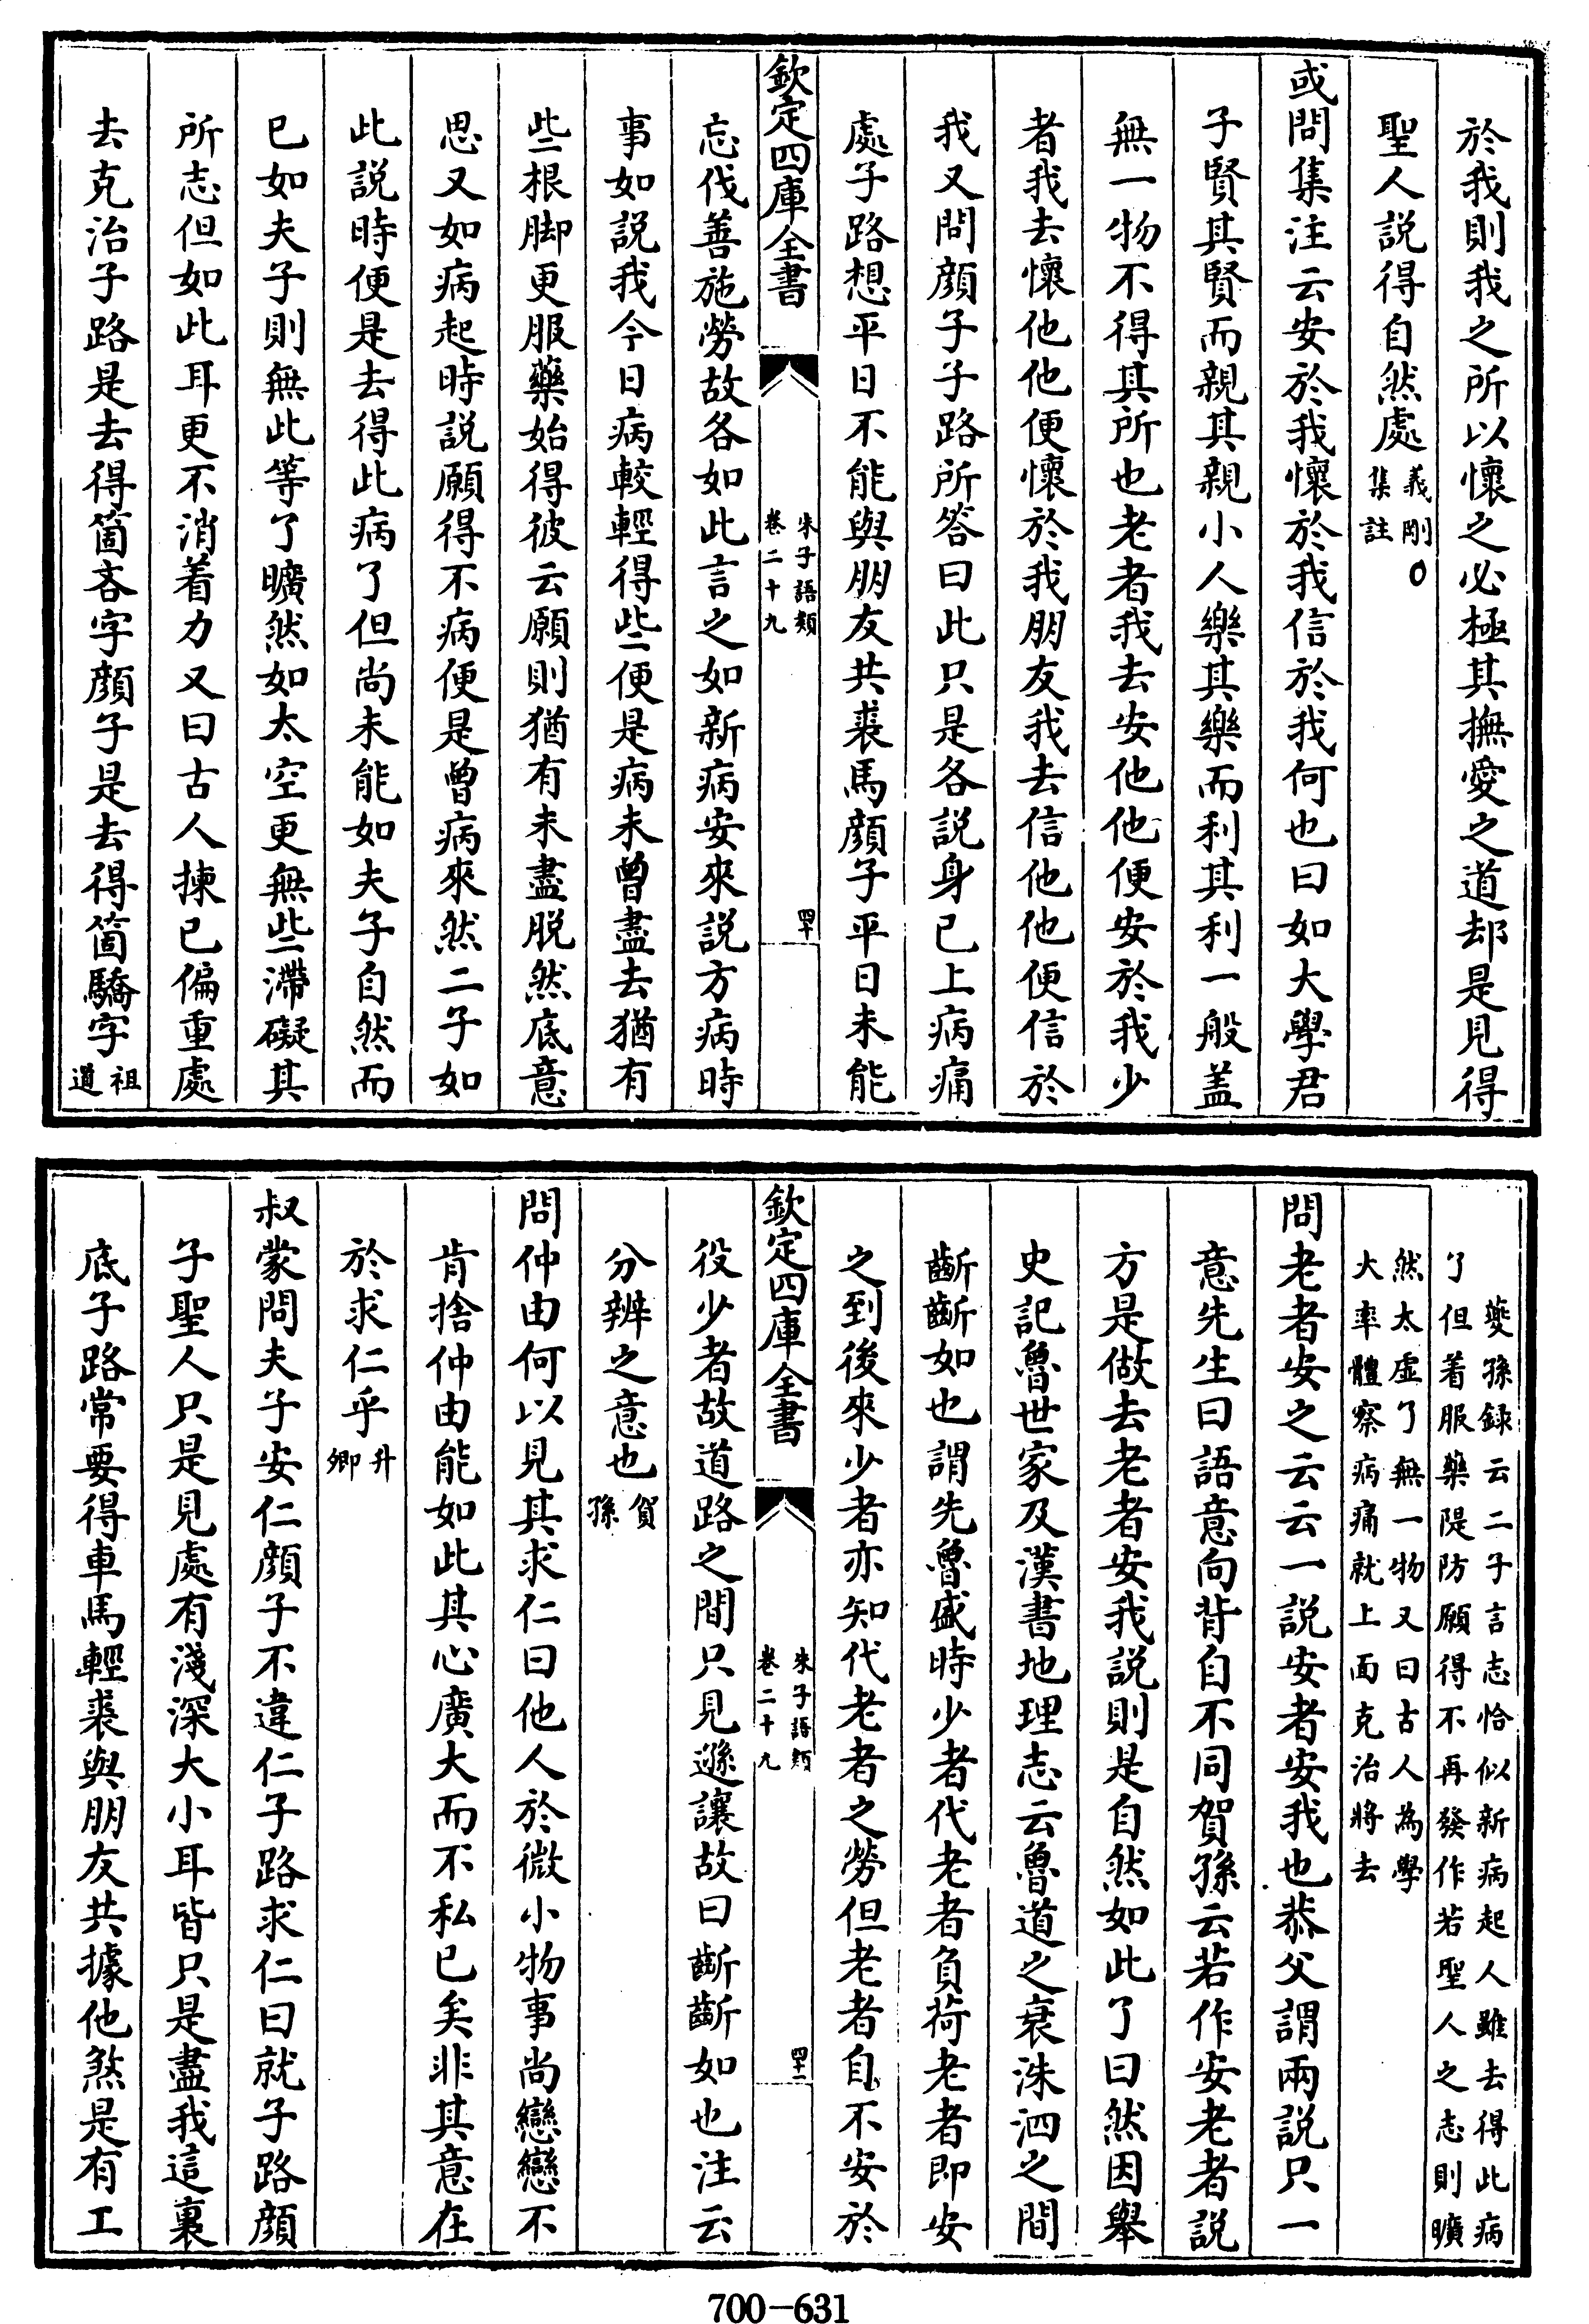 於我則我之所以懷之必極其撫愛之道却是見得
聖人説得自然處義剛○集註
或問集注云安於我懷於我信於我何也曰如大學君
子賢其賢而親其親小人樂其樂而利其利一般盖
無一物不得其所也老者我去安他他便安於我少
者我去懷他他便懷於我朋友我去信他他便信於
我又問顔子子路所答曰此只是各説身已上病痛
處子路想平日不能與朋友共裘馬顔子平日未能
欽定四庫全書
朱子語類
卷二十九
四十
忘伐善施勞故各如此言之如新病安來説方病時
事如説我今日病較輕得些便是病未曾盡去猶有
些根脚更服藥始得彼云願則猶有未盡脱然底意
思又如病起時説願得不病便是曾病來然二子如
此説時便是去得此病了但尚未能如夫子自然而
已如夫子則無此等了曠然如太空更無些滯礙其
所志但如此耳更不消着力又曰古人揀已偏重處
去克治子路是去得箇吝字顔子是去得箇驕字祖道
夔孫録云二子言志恰似新病起人雖去得此病
了但着服藥隄防願得不再發作若聖人之志則曠
然太虚了無一物又曰古人為學
大率體察病痛就上面克治將去
問老者安之云云一説安者安我也恭父謂兩説只一
意先生曰語意向背自不同賀孫云若作安老者説
方是做去老者安我説則是自然如此了曰然因舉
史記魯世家及漢書地理志云魯道之衰洙泗之間
齗齗如也謂先魯盛時少者代老者負荷老者即安
之到後來少者亦知代老者之勞但老者自不安於
欽定四庫全書
朱子語類
卷二十九
四十一
役少者故道路之間只見遜讓故曰齗齗如也注云
分辨之意也賀孫
問仲由何以見其求仁曰他人於微小物事尚戀戀不
肯捨仲由能如此其心廣大而不私已矣非其意在
於求仁乎升卿
叔蒙問夫子安仁顔子不違仁子路求仁曰就子路顔
子聖人只是見處有淺深大小耳皆只是盡我這裏
底子路常要得車馬輕裘與朋友共據他煞是有工
700-631